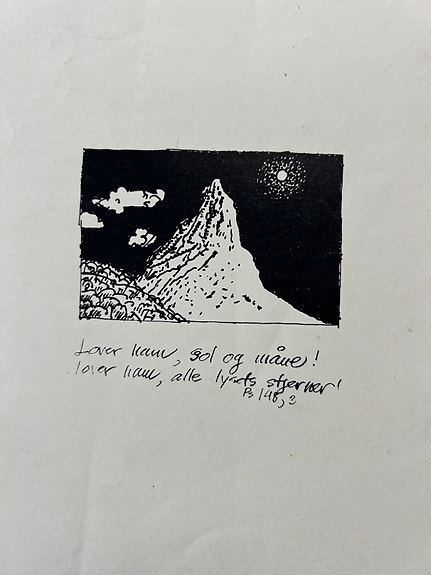 Lover ham, sol og måne!
lover ham, alle lysets stjerner!
Ps 148, 3